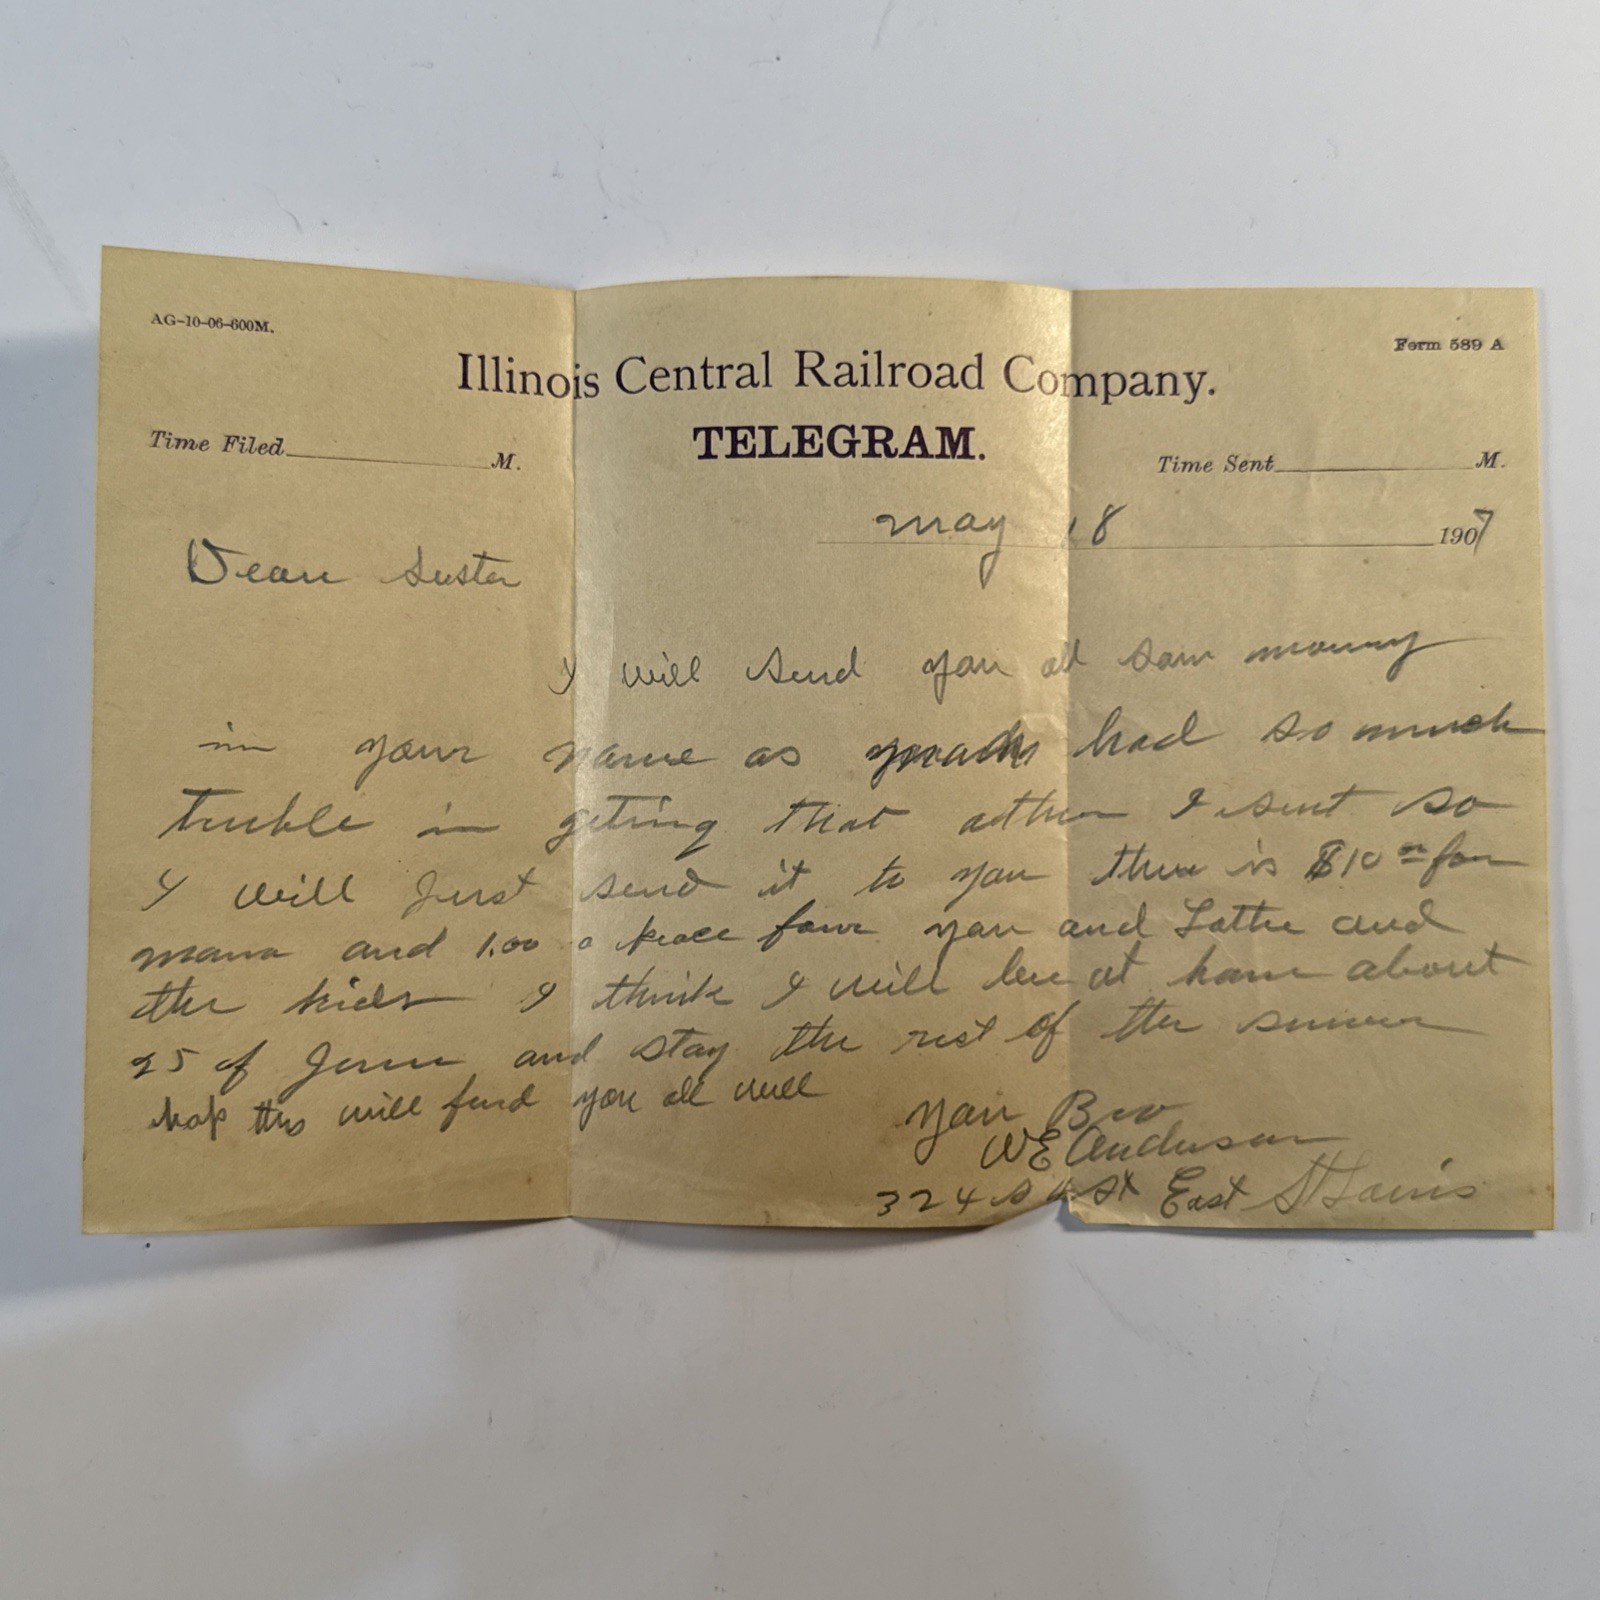 AG-10-06-600M.
Form 589 A
Illinois Central Railroad Company.
TELEGRAM.
Time Filed M.
Time Sent M.
may 18 1907
Dear Sister
I will send you all som mouny
in your name as had so much
truble in geting that other I sent so
I will Just send it to you ther is $10 00 for
mama and 1.00 a peace four you and Lottie and
the kids I think I will be at home about
25 of June and stay the rest of the sumer
hop this will find you all well
your Bro
WE Anderson
324 St East St Louis